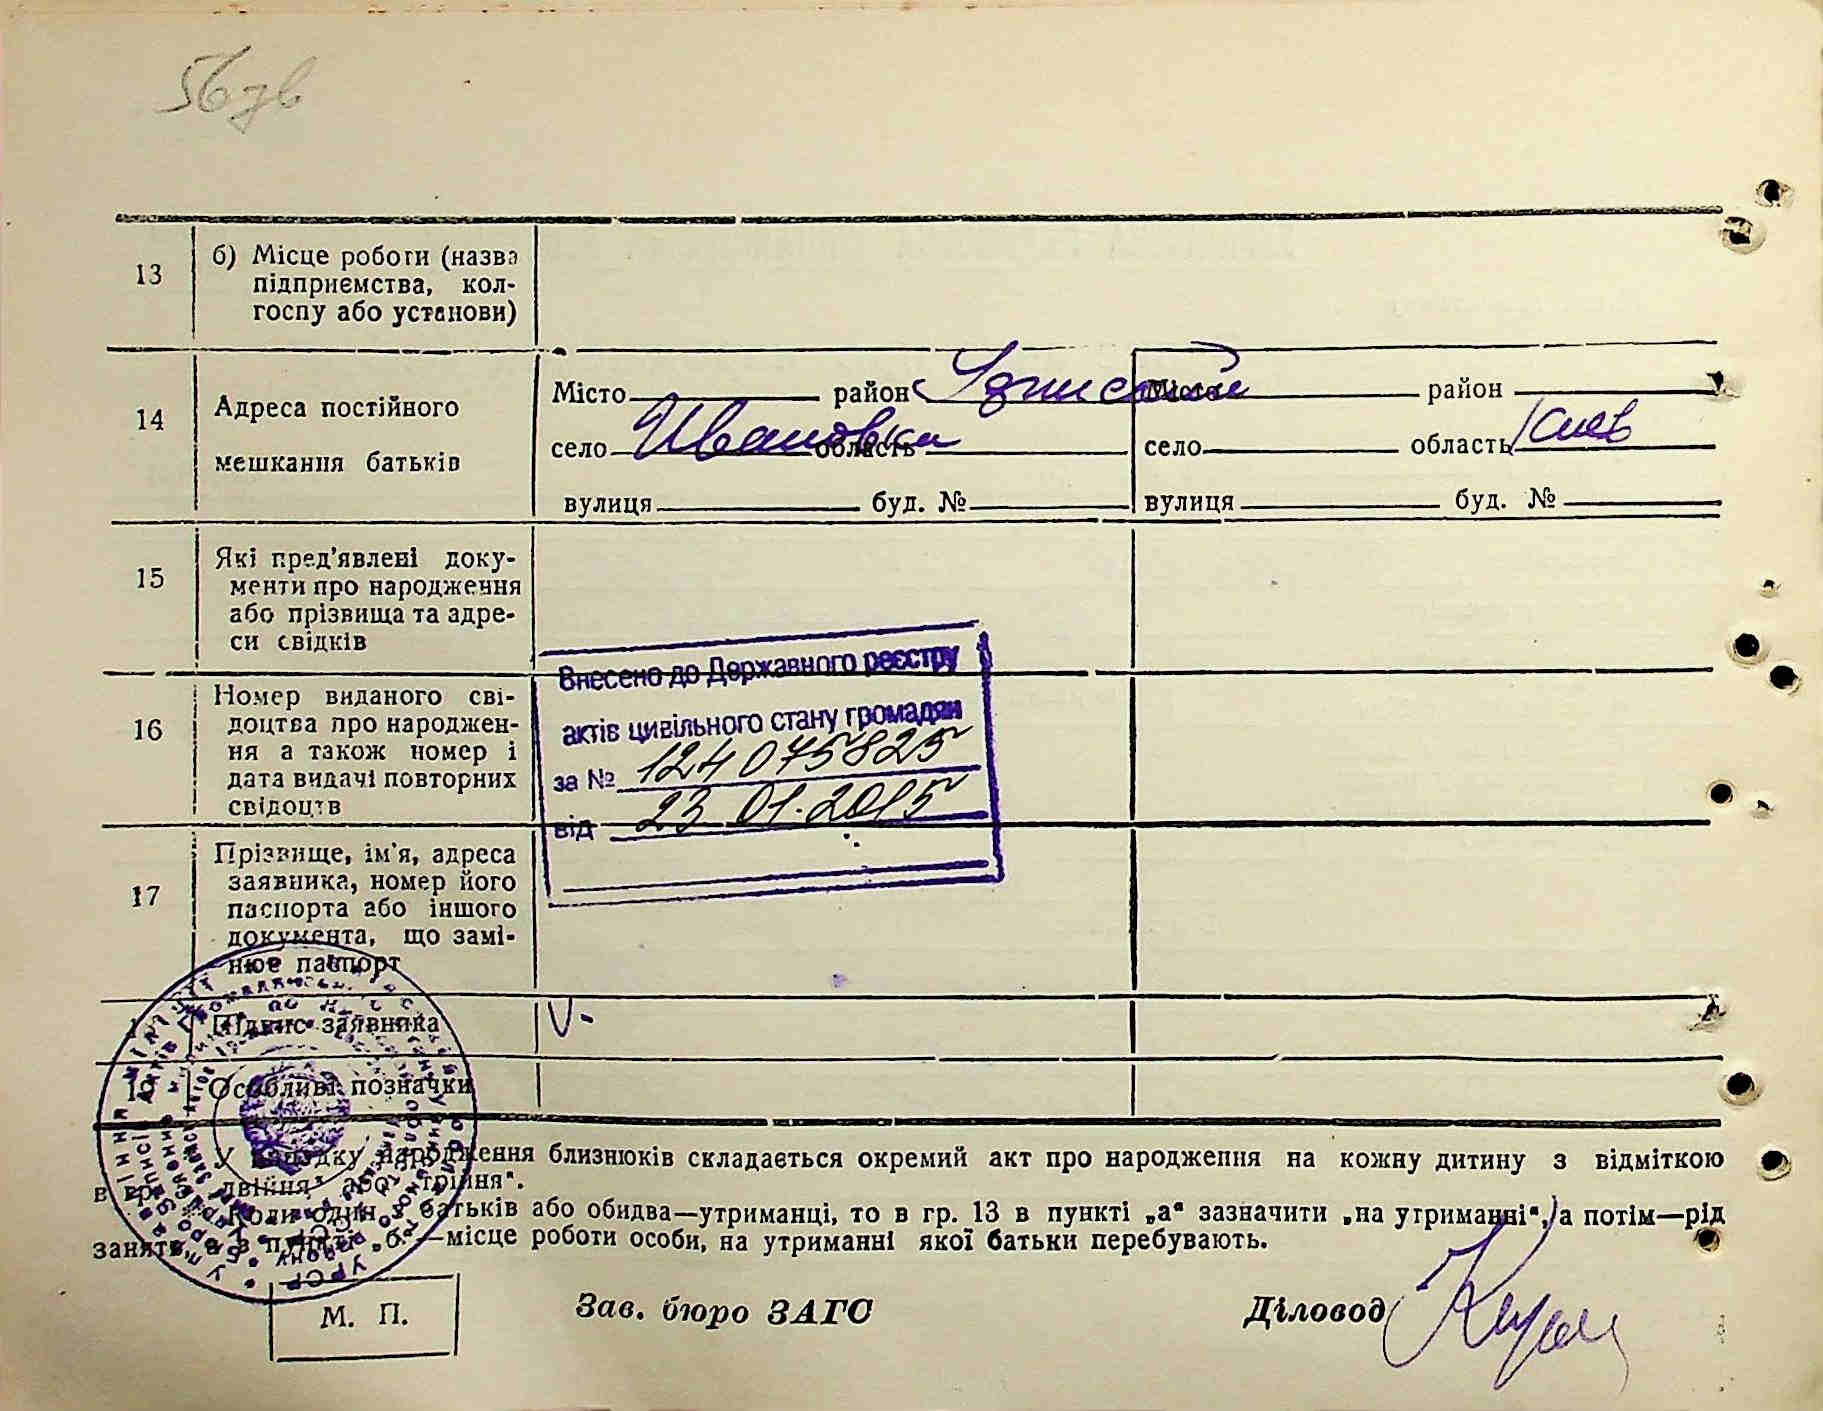 13
б) Місце роботи (назва
підприємства, кол-
госпу або установи)
14
Адреса постійного
мешкання батьків
Місто район
село Ивановка область
вулиця буд. №
Місто район
село область Киев
вулиця буд. №
15
Які пред'явлені доку-
менти про народження
або прізвища та адре-
си свідків
16
Номер виданого сві-
доцтва про народжен-
ня а також номер і
дата видачі повторних
свідоцтв
Внесено до Державного реєстру
актів цивільного стану громадян
за № 124075825
від 23.01.2015
17
Прізвище, ім'я, адреса
заявника, номер його
паспорта або іншого
документа, що замі-
нює паспорт
Підпис заявника
19 Особливі позначки
У випадку народження близнюків складається окремий акт про народження на кожну дитину з відміткою
в гр. „двійня" або „трійня".
Коли один з батьків або обидва—утриманці, то в гр. 13 в пункті „а" зазначити „на утриманні", а потім—рід
занять, а в пункті „б"—місце роботи особи, на утриманні якої батьки перебувають.
М. П.
Зав. бюро ЗАГС
Діловод